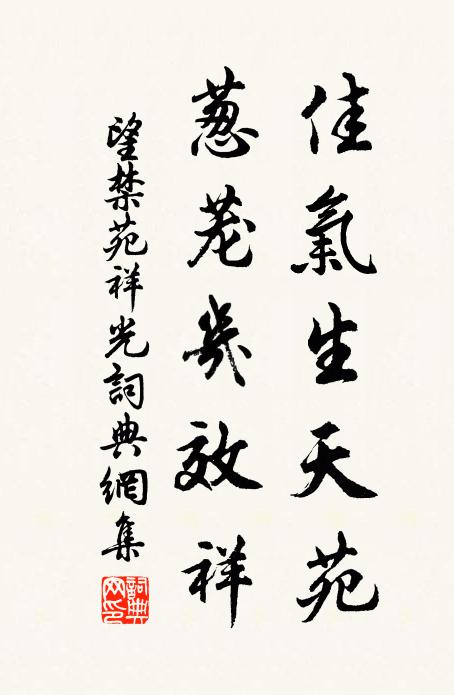 佳氣生天苑
葱蘢幾效祥
望禁苑祥光詞典網集
詞典
网印